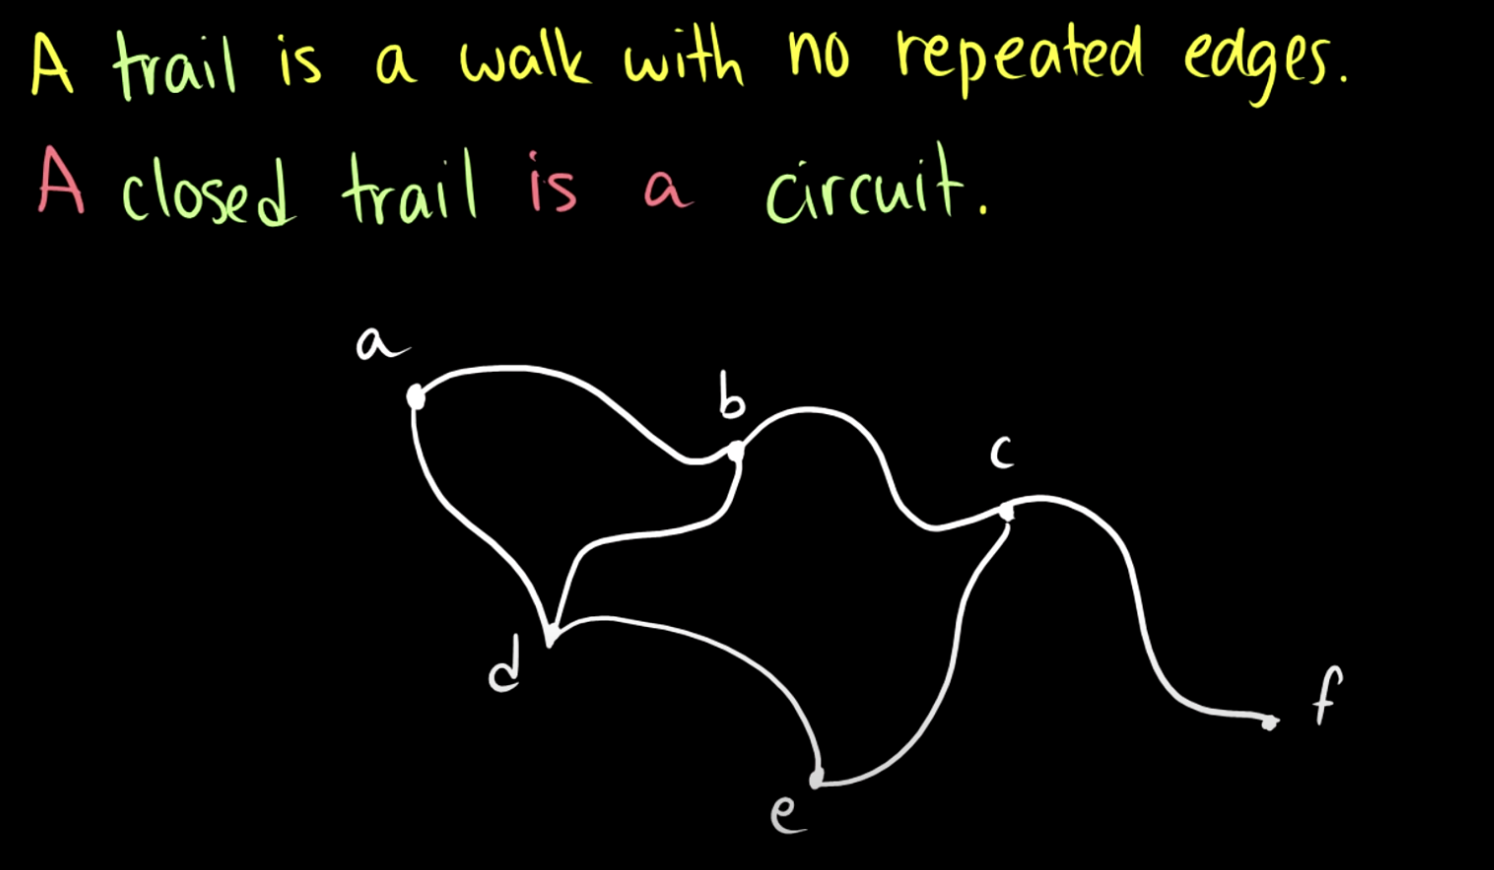 A trail is a walk with no repeated edges.
A closed trail is a circuit.
a
b
c
d
f
e